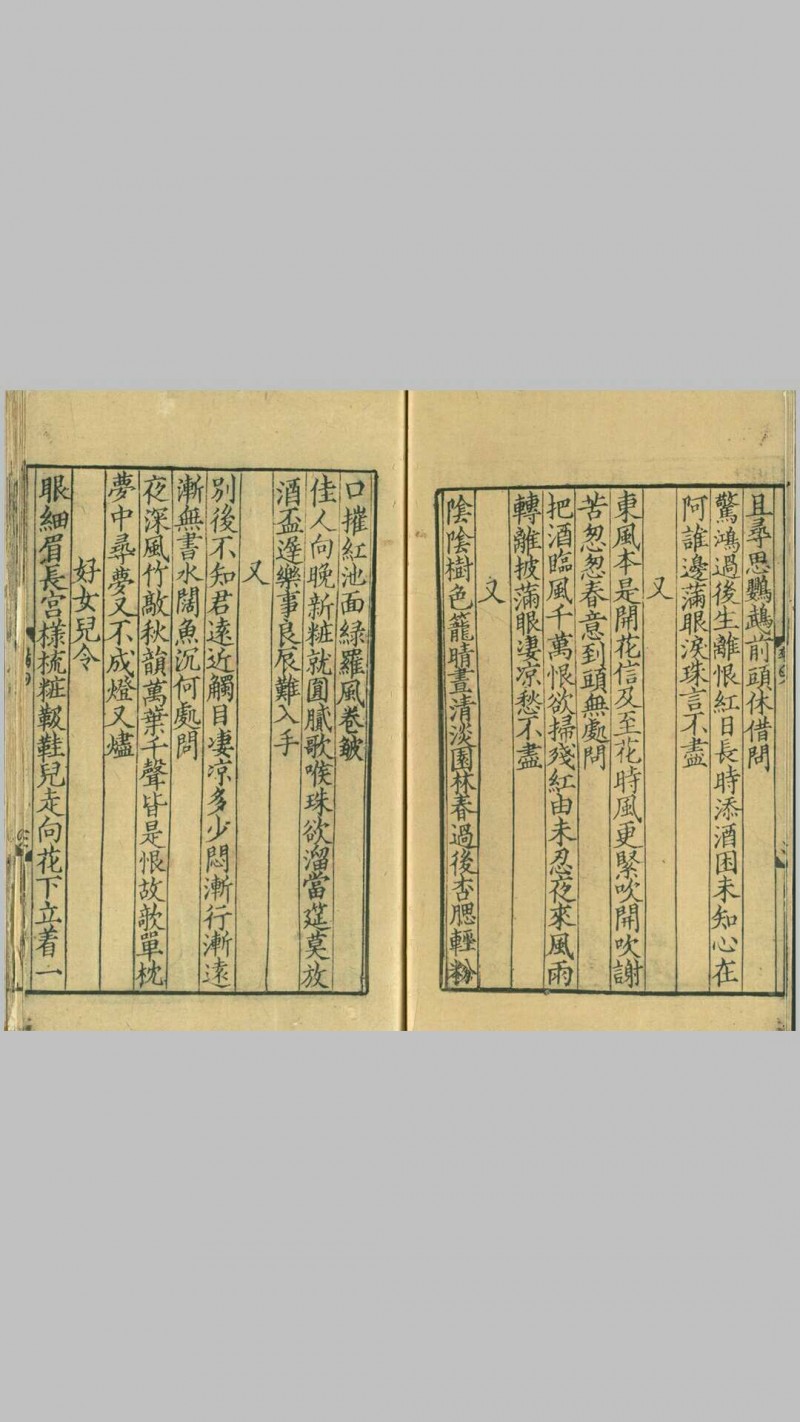 且尋思鸚鵡前頭休借問
驚鴻過後生離恨紅日長時添酒困未知心在
阿誰邊蒲眼淚珠言不盡
又
東風本是開花信及至花時風更緊吹開吹謝
苦怱怱春意到頭無處問
把酒臨風千萬恨欲掃殘紅由未忍夜來風雨
轉離披蒲眼凄凉愁不盡
又
陰陰樹色籠晴晝清淡園林春過後杏腮輕粉
口摧紅池面綠羅風卷皺
佳人向晚新粧就圓膩歌喉珠欲溜當筵莫放
酒盃遲樂事良辰難入手
又
別後不知君遠近觸目凄凉多少悶漸行漸遠
漸無書水闊魚沉何處問
夜深風竹敲秋韻萬葉千聲皆是恨故欹單枕
夢中尋夢又不成燈又燼
好女兒令
眼細眉長宮樣梳粧靸鞋兒走向花下立着一